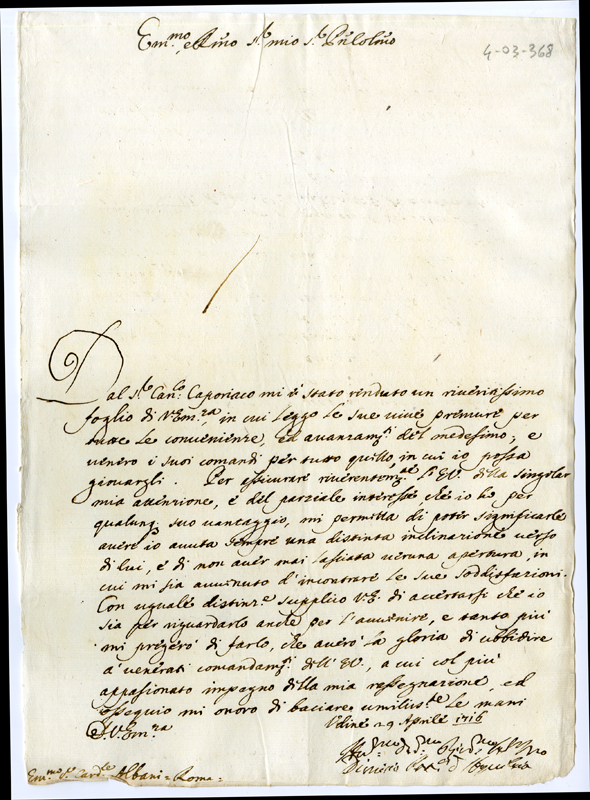 Em.mo, e Rmo Sr. mio Sr. Prlo lmo
4-03-368
Dal Sr. Can.co Caporiaco mi è stato renduto un riveritissimo
foglio di V. Em.za, in cui leggo le sue vive premure per
tutte le convenienze, ed avanzam.ti del medesimo; e
venero i suoi comandi per tutto quello, in cui io possa
giovargli. Per assicurare riverentem.te l'E.V. della singolar
mia attenzione, e del parziale interesse che io ho per
qualunq. suo vantaggio, mi permetta di poter significarle
avere io avuta sempre una distinta inclinazione verso
di lui, e di non aver mai lasciata veruna apertura, in
cui mi sia avvenuto d'incontrare le sue soddisfazioni.
Con uguale distinz.e supplico V.E. di accertarsi che io
sia per riguardarlo anche per l'avvenire, e tanto più
mi pregerò di farlo, che averò la gloria di ubbidire
a' venerati comandam.ti dell'E.V., a cui col più
appasionato impegno della mia rassegnazione, ed
ossequio mi onoro di baciare umilis.te le mani
D. V. Em.za
Udine 29 Aprile 1716
Dionisio
Em.mo Sr. Card.le Albani = Roma =